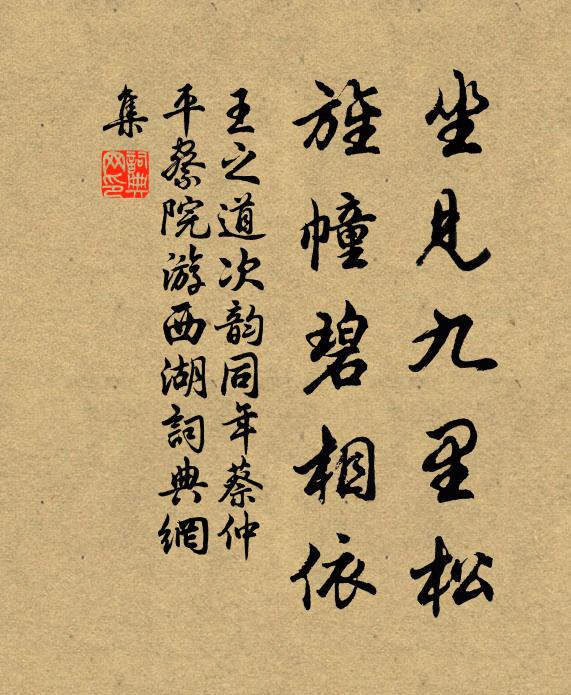 坐見九里松
旌幢碧相依
王之道次韵同年蔡仲
平察院游西湖詞典網
集
詞典
网印